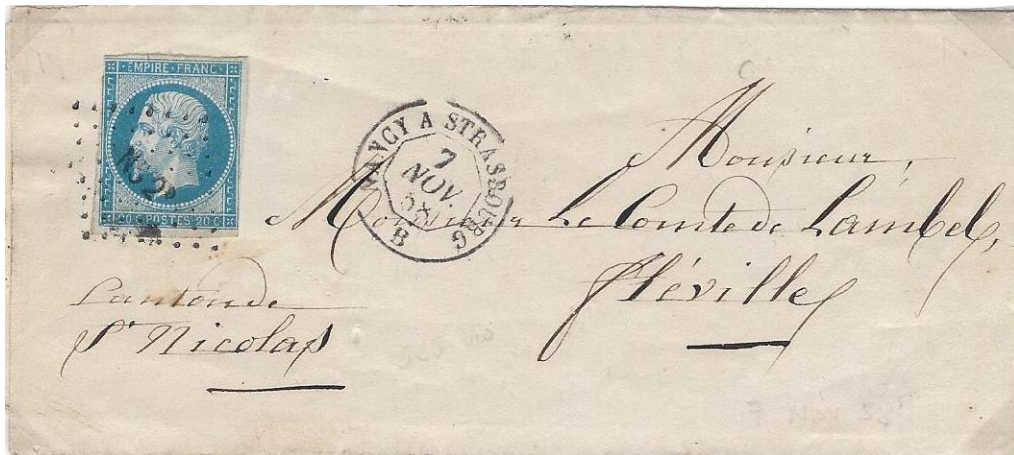 EMPIRE · FRANC ·
NG 2º
20 C POSTES 20 C
NANCY A STRASBOURG
7
NOV.
B
Monsieur,
Monsieur Le Comte de Lambel,
Fléville
Canton de
St Nicolas